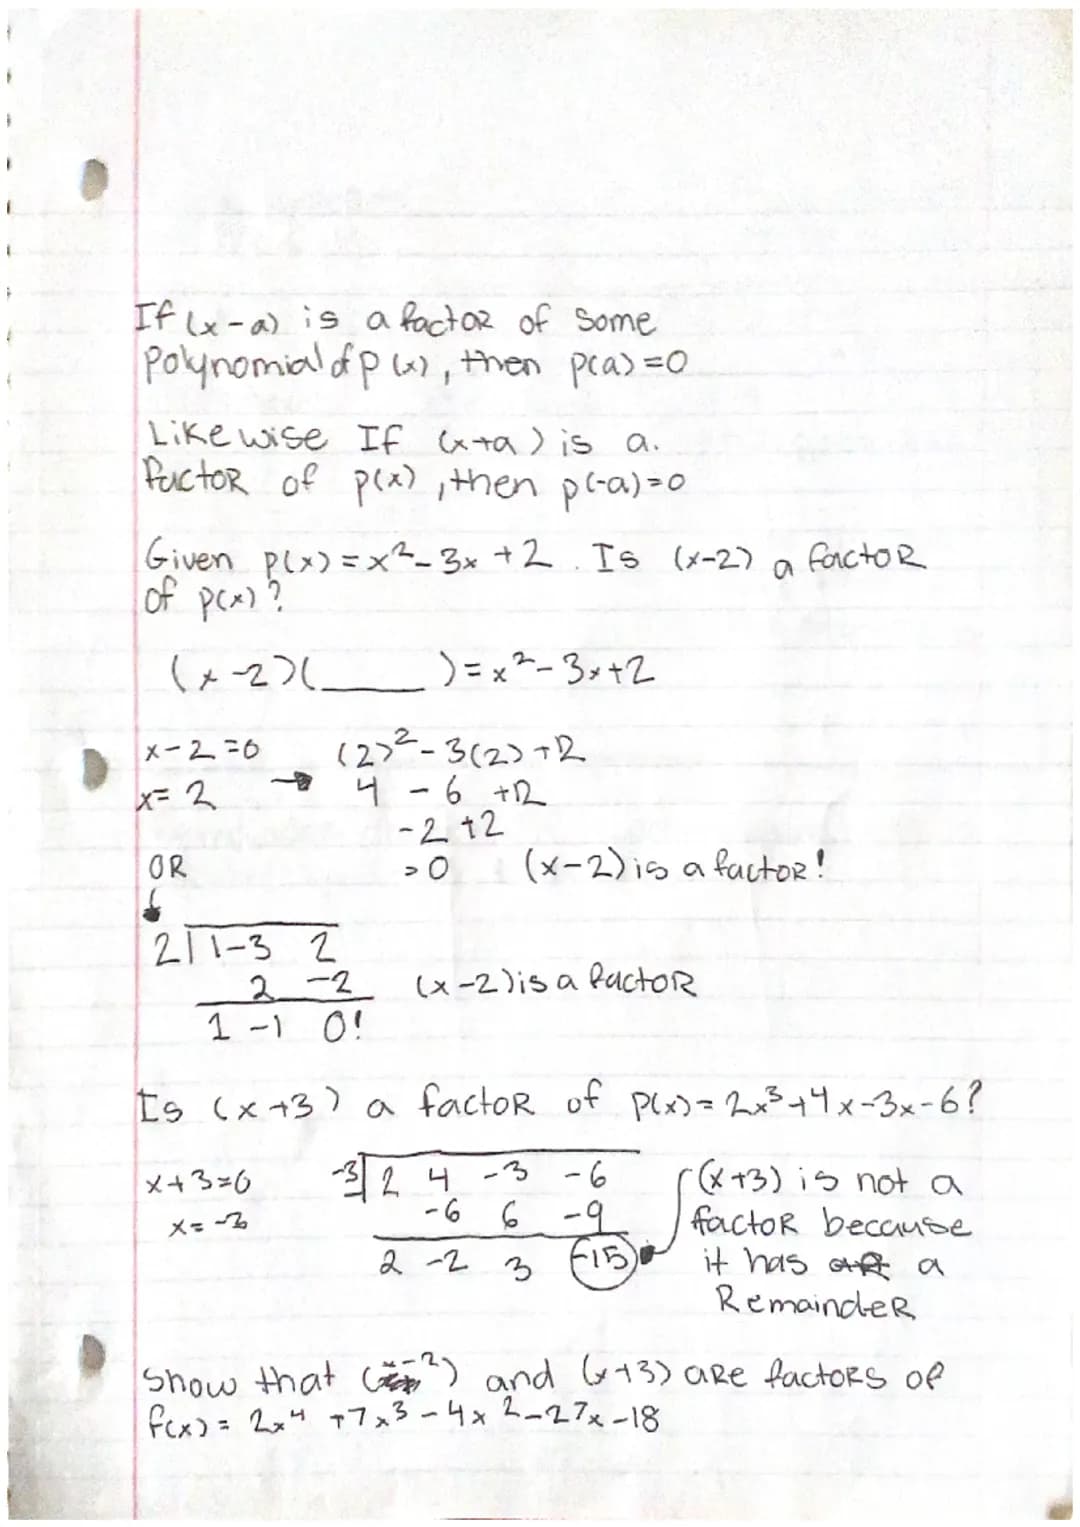 If (x-a) is a factor of some
polynomial of p(x), then p(a)=0
Likewise If (x+a) is a.
factor of p(x), then p(-a)=0
Given p(x) = x²-3x +2. Is (x-2) a factor
of p(x)?
(x-2)(____)=x²-3x+2
x-2=0 (2)²-3(2)+2
x=2 → 4 -6 +2
-2 +2
OR =0 (x-2) is a factor!
2| 1 -3 2
2 -2 (x-2) is a factor
1 -1 0!
Is (x+3) a factor of p(x)= 2x³+4x-3x-6?
x+3=0 -3| 2 4 -3 -6 (x+3) is not a
x=-3 -6 6 -9 factor because
2 -2 3 -15 it has a
Remainder
Show that (x-2) and (x+3) are factors of
f(x)= 2x⁴ +7x³-4x²-27x-18